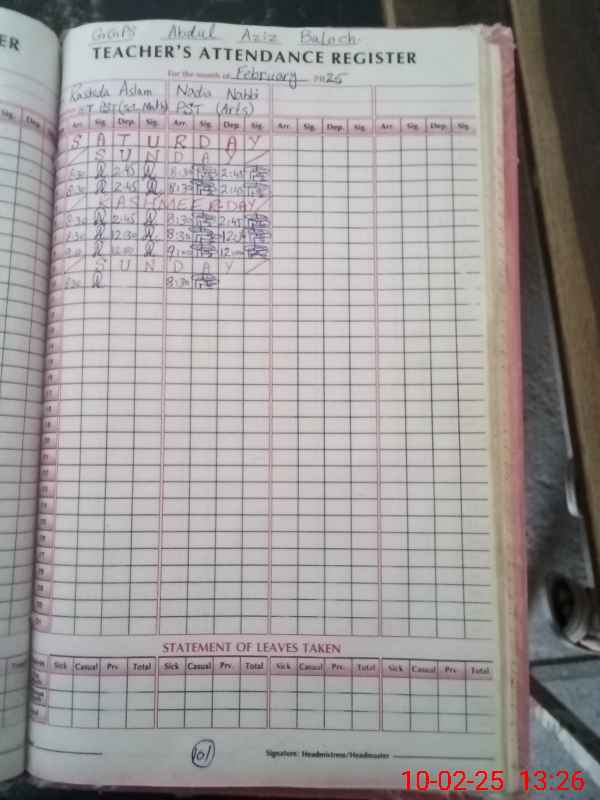 ER
GGPS Abdul Aziz Baloch
TEACHER'S ATTENDANCE REGISTER
For the month of February 2025
Rashida Aslam Nadia Nabbi
PST (Arts)
Sig. Dep. Arr. Sig. Dep. Sig. Arr. Sig. Dep. Sig. Arr. Sig. Dep. Sig. Arr. Sig. Dep. Sig.
S A T U R D A Y
S U N D A Y
8:30 2:45 8:30 2:45
8:30 2:45 8:30 2:45
KASHMEER DAY
8:30 2:45 8:30 2:45
8:30 12:30 8:30
9:00 12:00 9:00 12:00
S U N D A Y
8:30 8:30
STATEMENT OF LEAVES TAKEN
Sick Casual Prv. Total Sick Casual Prv. Total Sick Casual Prv. Total Sick Casual Prv. Total
101
Signature: Headmistress/Headmaster
10-02-25 13:26